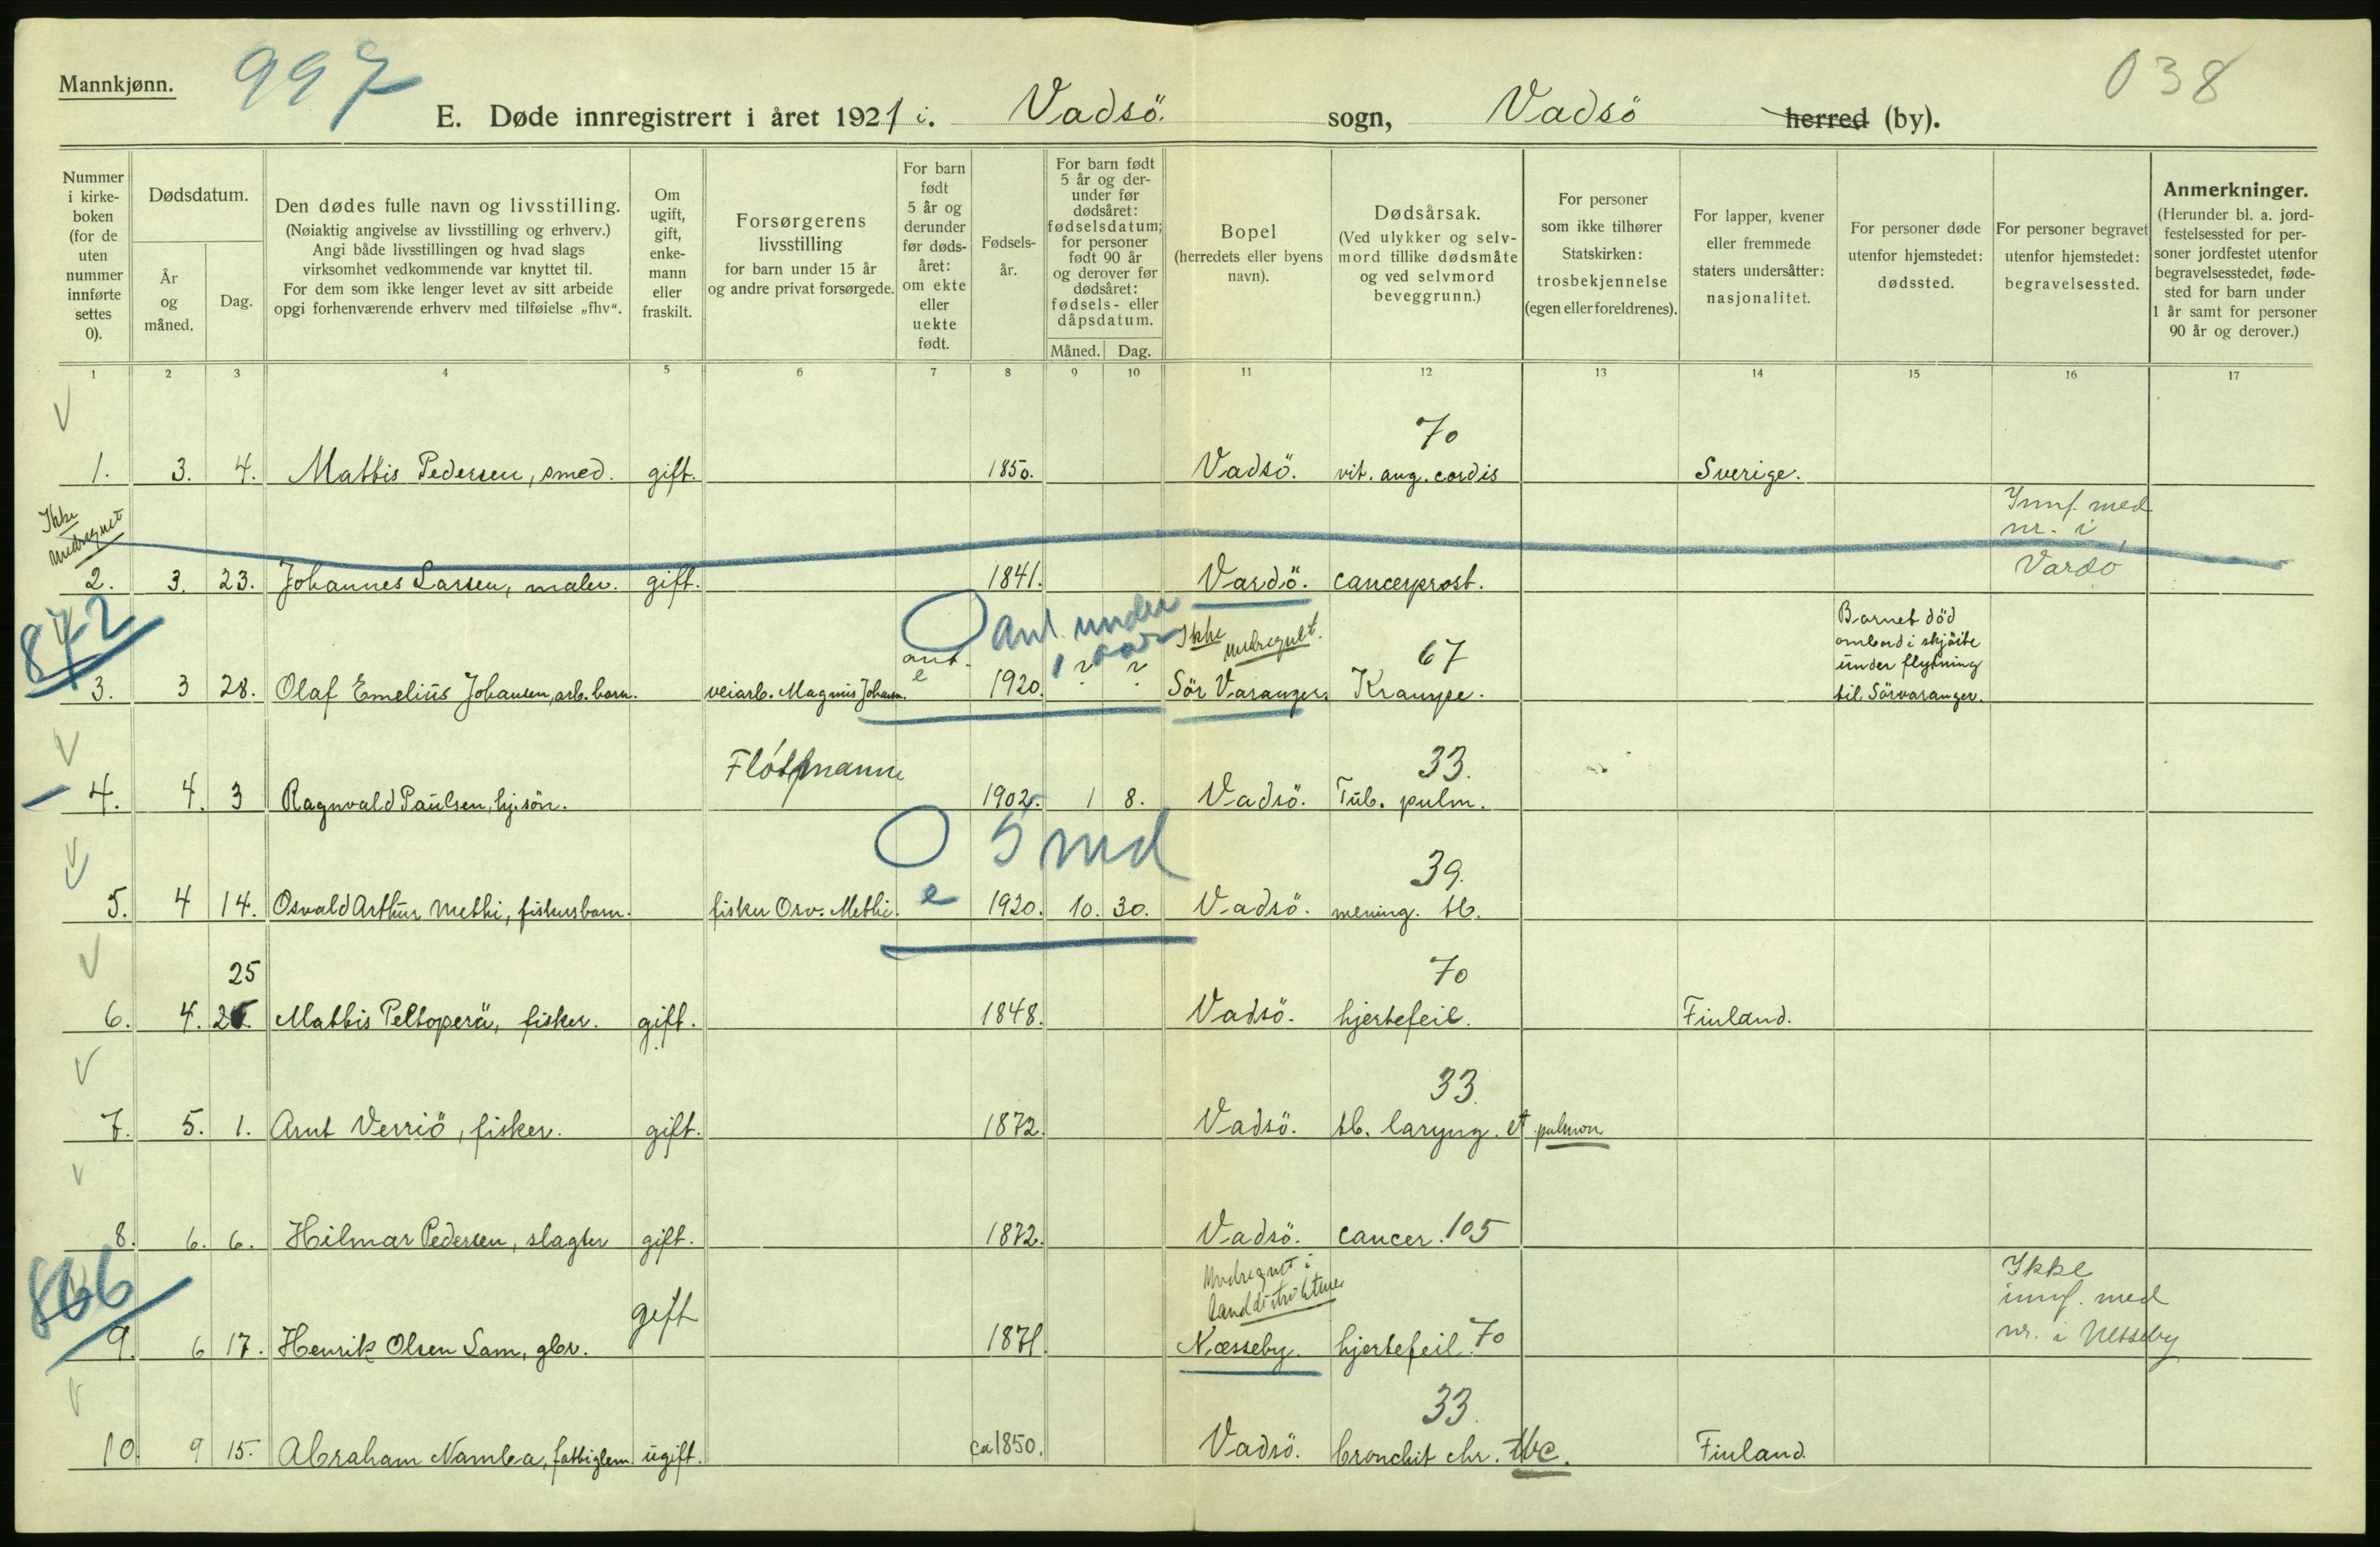 Mannkjønn.
997
038
E. Døde innregistrert i året 1921 i. Vadsö. sogn, Vadsö herred (by).
Nummer i kirkeboken (for de uten nummer innførte settes 0).
Dødsdatum.
År og måned.
Dag.
Den dødes fulle navn og livsstilling.
(Nøiaktig angivelse av livsstilling og erhverv.)
Angi både livsstillingen og hvad slags
virksomhet vedkommende var knyttet til.
For dem som ikke lenger levet av sitt arbeide
opgi forhenværende erhverv med tilføielse „fhv“.
Om ugift, gift, enkemann eller fraskilt.
Forsørgerens livsstilling
for barn under 15 år
og andre privat forsørgede.
For barn født 5 år og derunder før dødsåret: om ekte eller uekte født.
Fødselsår.
For barn født 5 år og derunder før dødsåret: fødselsdatum; for personer født 90 år og derover før dødsåret: fødsels- eller dåpsdatum.
Måned. Dag.
Bopel
(herredets eller byens navn).
Dødsårsak.
(Ved ulykker og selvmord tillike dødsmåte og ved selvmord beveggrunn.)
For personer som ikke tilhører Statskirken: trosbekjennelse (egen eller foreldrenes).
For lapper, kvener eller fremmede staters undersåtter: nasjonalitet.
For personer døde utenfor hjemstedet: dødssted.
For personer begravet utenfor hjemstedet: begravelsessted.
Anmerkninger.
(Herunder bl. a. jordfestelsessted for personer jordfestet utenfor begravelsesstedet, fødested for barn under 1 år samt for personer 90 år og derover.)
1 2 3 4 5 6 7 8 9 10 11 12 13 14 15 16 17
70
1. 3. 4. Mathis Pedersen, smed. gift. 1850. Vadsö. vit. ang. cordis Sverige.
Ikke medregnet
Innf. med nr. i Vardö
2. 3. 23. Johannes Larsen, maler. gift. 1841. Vardö. cancerprost.
872
ant. under 1 aar
Ikke medregnet.
67
Barnet död
ombord i skjöite
under flytning
til Sörvaranger.
ant.
3. 3 28. Olaf Emelius Johansen, arb. barn. veiarb. Magnus Johans. e 1920. ? ? Sör Varanger. Krampe.
Flótmann
33.
4. 4. 3 Ragnvald Paulsen, hj. sön. 1902. 1 8. Vadsö. Tub. pulm.
5 md
39.
5. 4 14. Osvald Arthur Methi, fiskersbarn. fisker Osv. Methi. e 1920. 10. 30. Vadsö. mening. tb.
25
70
6. 4. 25. Mathis Peltoperä, fisker. gift. 1848. Vadsö. hjertefeil. Finland.
33.
7. 5. 1. Arnt Verriö, fisker. gift. 1872. Vadsö. tb. laryng. et pulmon
8. 6. 6. Hilmar Pedersen, slagter gift. 1872. Vadsö. cancer. 105
866
Medregnet i
landdistriktene
Ikke
innf. med
nr. i Nesseby
9. 6 17. Henrik Olsen Sam, gbr. gift 1871. Næsseby. hjertefeil. 70
33.
10. 9 15. Abraham Namba, fattiglem ugift. ca 1850. Vadsö. bronchit chr. tbc. Finland.